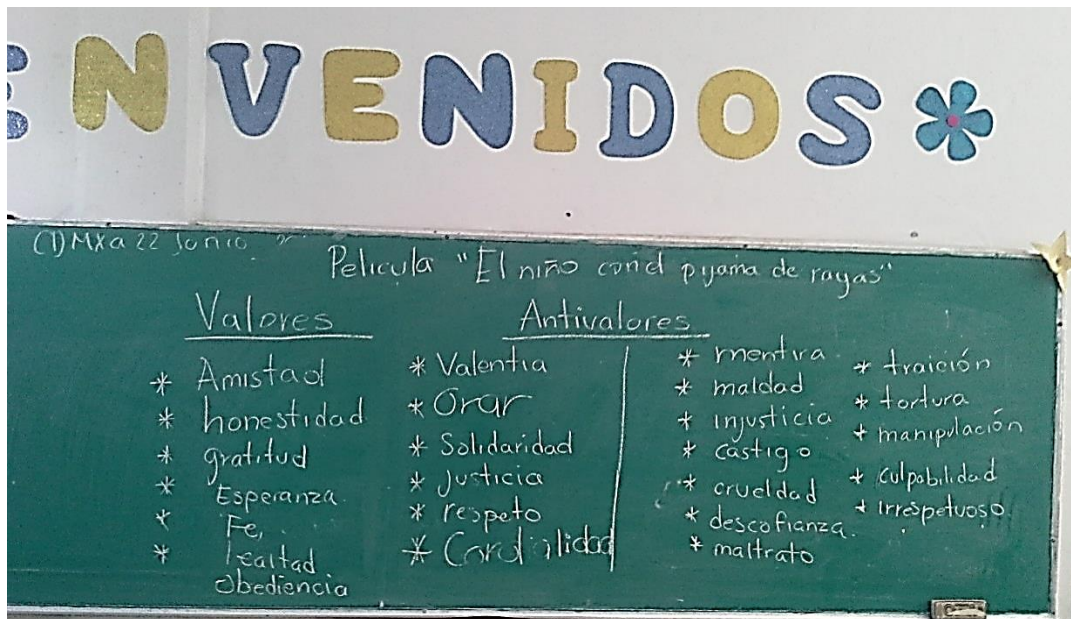 ENVENIDOS
a 22 Junio
Pelicula "El niño con el pyama de rayas"
Valores
Amistad
honestidad
gratitud
Esperanza.
Fe,
lealtad
obediencia
Antivalores
* Valentia
* Orar
* Solidaridad
* Justicia
* respeto
* Cordialidad
* mentira
* maldad
* injusticia
* castigo
* crueldad
* descofianza.
* maltrato
* traición
* tortura
* manipulación
* culpabilidad
* irrespetuoso